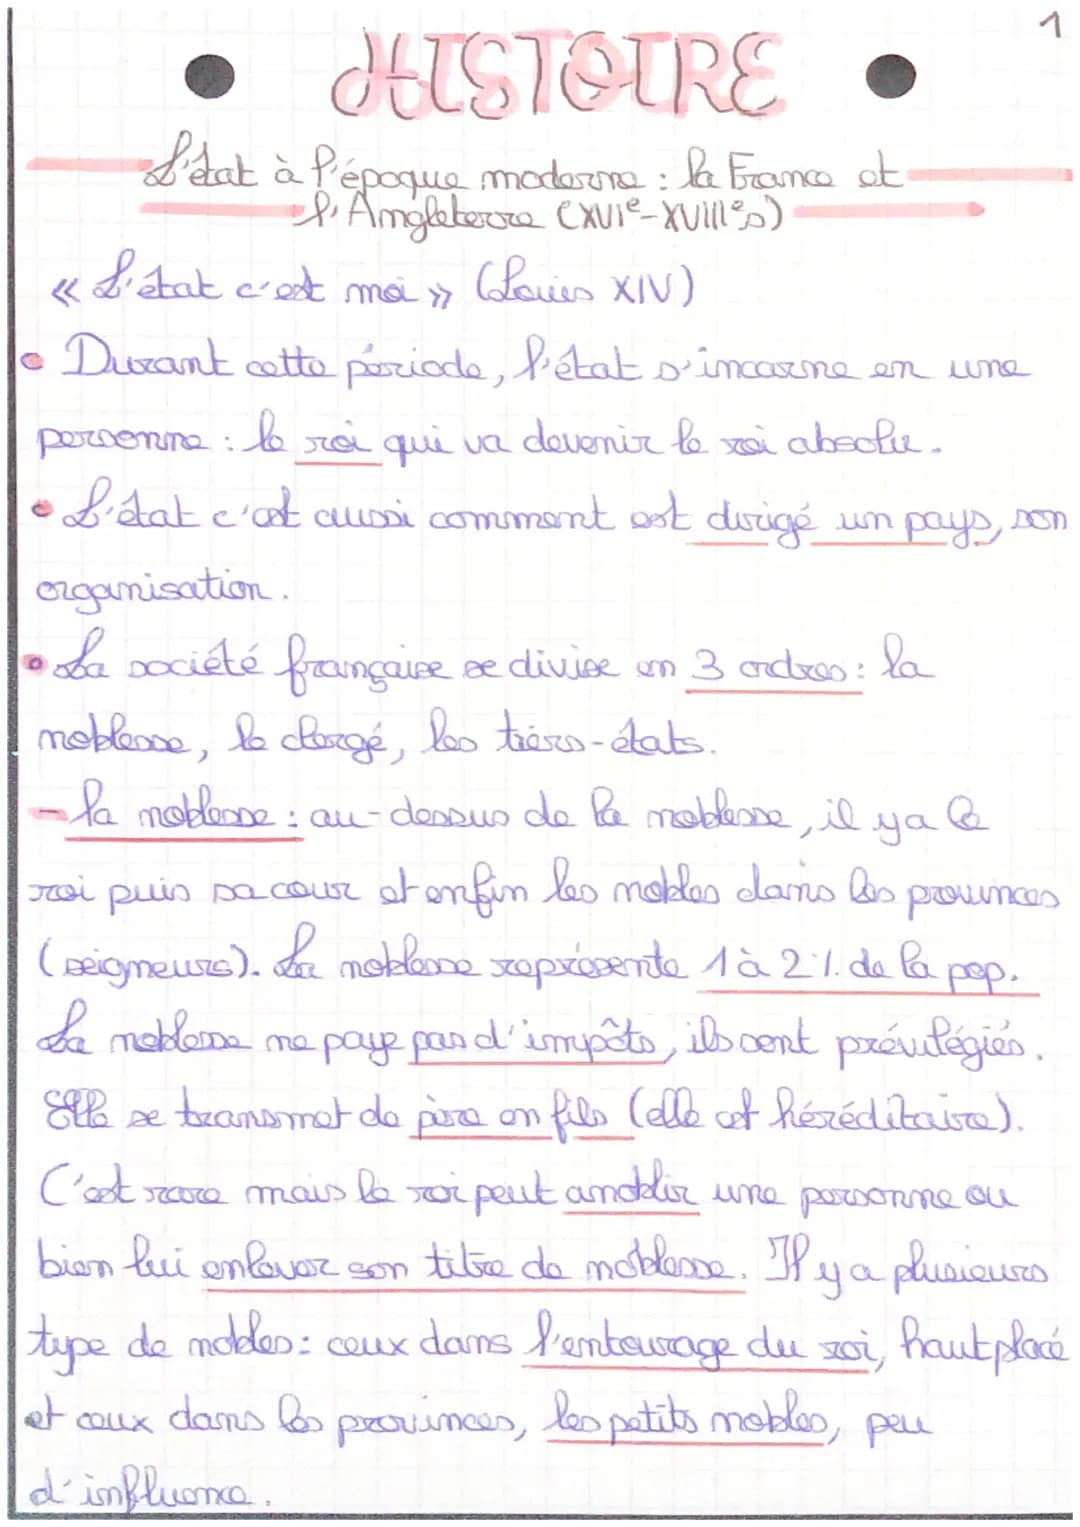 1
HISTOIRE
L'état à l'époque moderne : la France et
l'Angleterre (XVIe-XVIIIe s)
« L'état c'est moi » (Louis XIV)
• Durant cette période, l'état s'incarne en une
personne : le roi qui va devenir le roi absolu.
• L'état c'est aussi comment est dirigé un pays, son
organisation.
• La société française se divise en 3 ordres : la
noblesse, le clergé, les tiers-états.
- la noblesse : au-dessus de la noblesse, il y a le
roi puis sa cour et enfin les nobles dans les provinces
(seigneurs). La noblesse représente 1 à 2% de la pop.
La noblesse ne paye pas d'impôts, ils sont prévilégiés.
Elle se transmet de père en fils (elle est héréditaire).
C'est rare mais le roi peut anoblir une personne ou
bien lui enlever son titre de noblesse. Il y a plusieurs
type de nobles : ceux dans l'entourage du roi, haut placé
et ceux dans les provinces, les petits nobles, peu
d'influence.